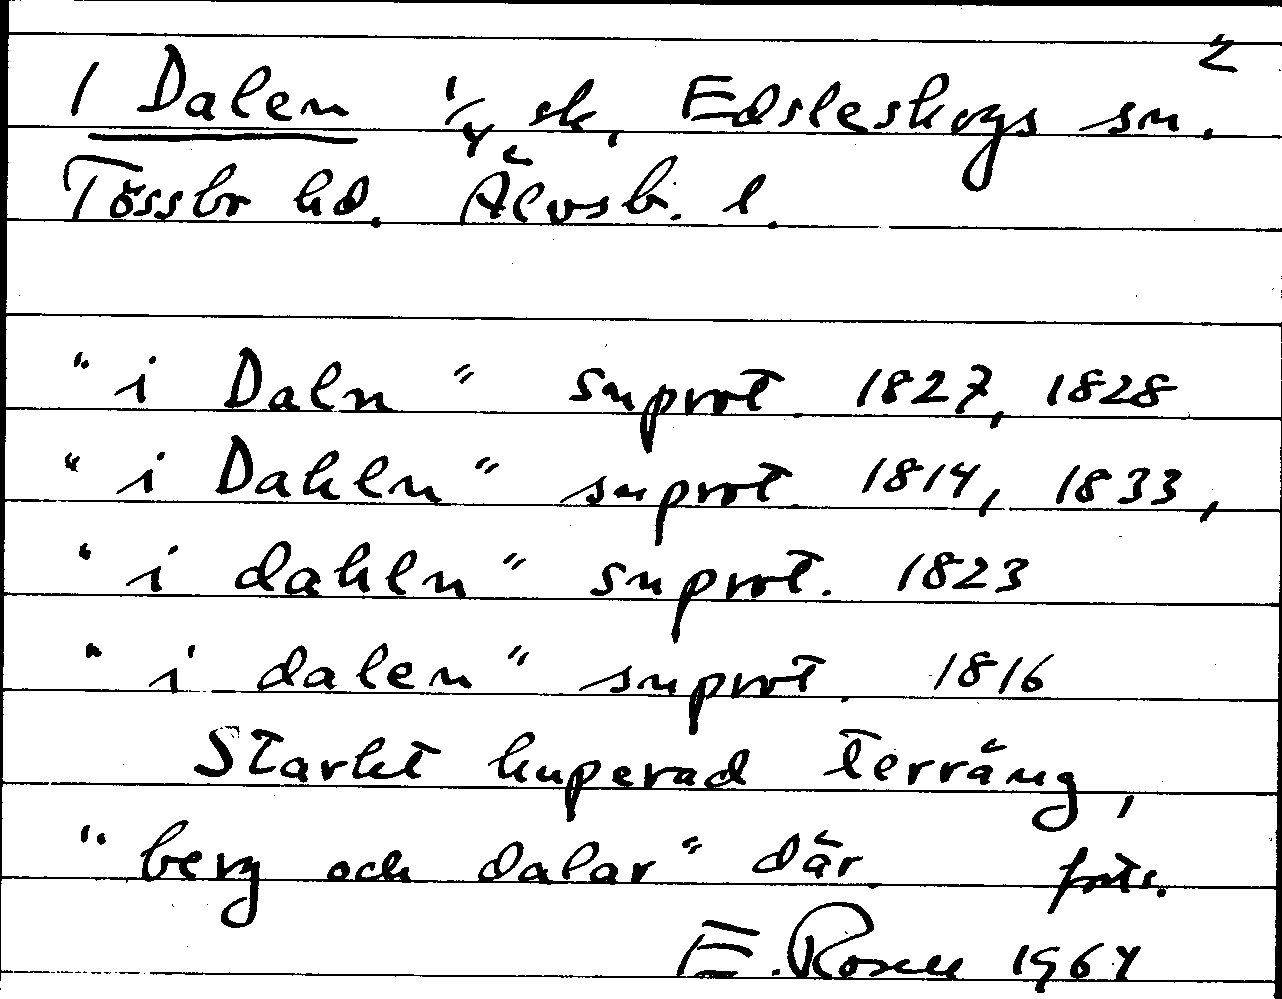 2
I Dalen 1/4 sk, Edsleskogs sn.
Tössbo hd. Älvsb. l.
"i Daln" snprot. 1827, 1828
"i Dahln" snprot. 1814, 1833,
"i dahln" snprot. 1823
"i dalen" snprot. 1816
Starkt kuperad terräng,
"berg och dalar" där forts.
E. Rosell 1964